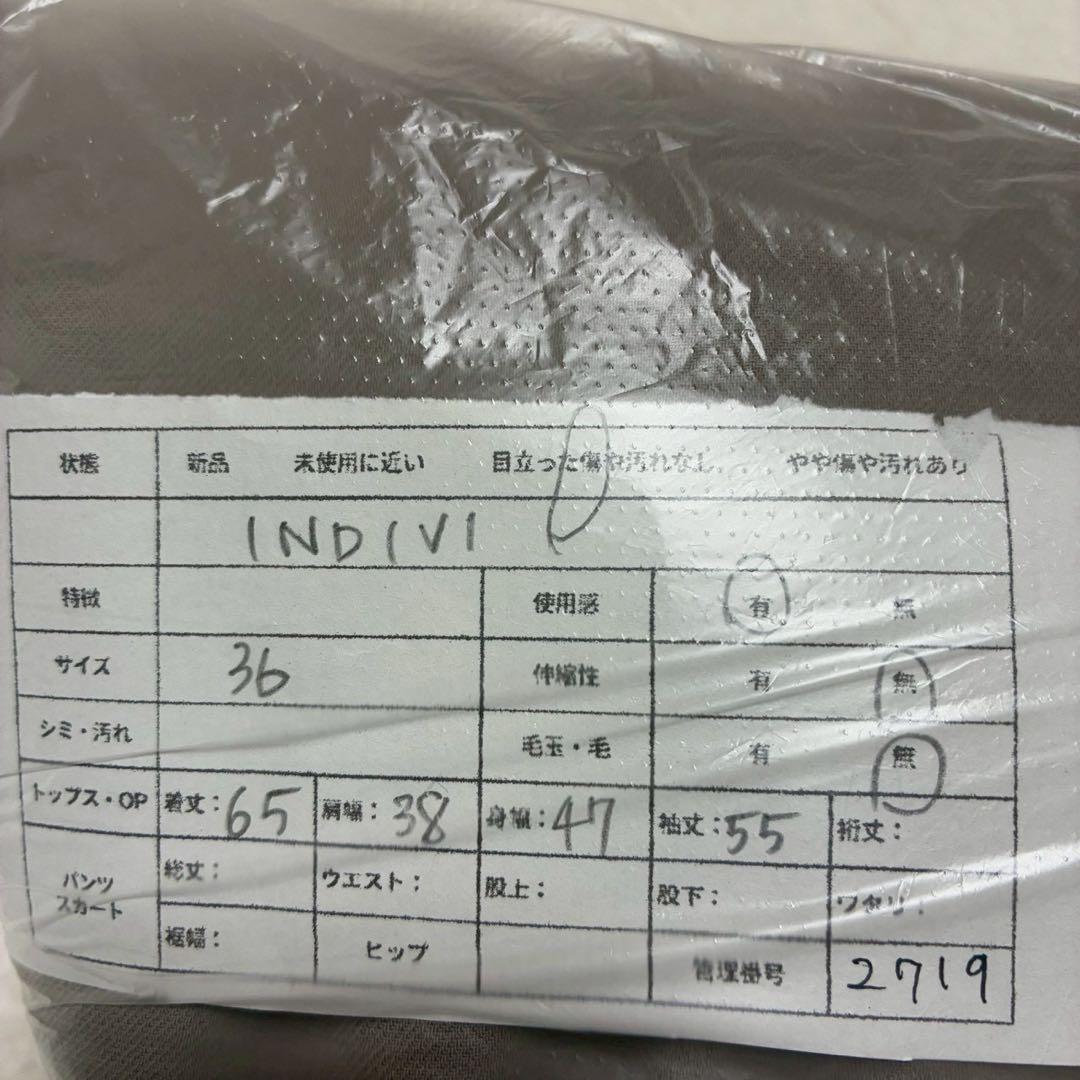 状態 新品 未使用に近い 目立った傷や汚れなし やや傷や汚れあり
INDIVI
特徴 使用感 有 無
サイズ 36 伸縮性 有 無
シミ・汚れ 毛玉・毛 有 無
トップス・OP 着丈：65 肩幅：38 身幅：47 袖丈：55 裄丈：
パンツ スカート 総丈： ウエスト： 股上： 股下： ワタリ：
裾幅： ヒップ 管理番号 2719